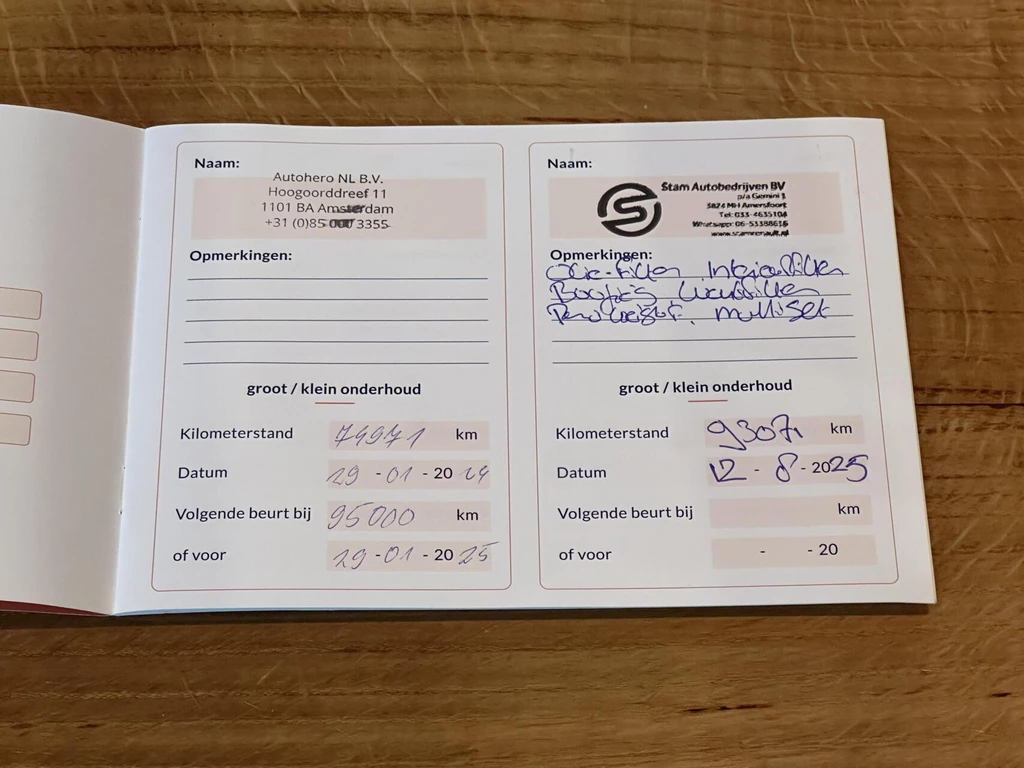 Naam:
Autohero NL B.V.
Hoogoorddreef 11
1101 BA Amsterdam
+31 (0)85 3355
Opmerkingen:
groot / klein onderhoud
Kilometerstand 74971 km
Datum 29 - 01 - 20 24
Volgende beurt bij 95000 km
of voor 29 - 01 - 20 25
Naam:
S
Stam Autobedrijven BV
p/a Gemini 1
3824 MH Amersfoort
Tel: 033-4635104
Whatsapp: 06-53388616
www.stamrenault.nl
Opmerkingen:
Olie-filter Interieurfilter
Bougies Luchtfilter
multiset
groot / klein onderhoud
Kilometerstand 93071 km
Datum 12 - 8 - 2025
Volgende beurt bij km
of voor - - 20